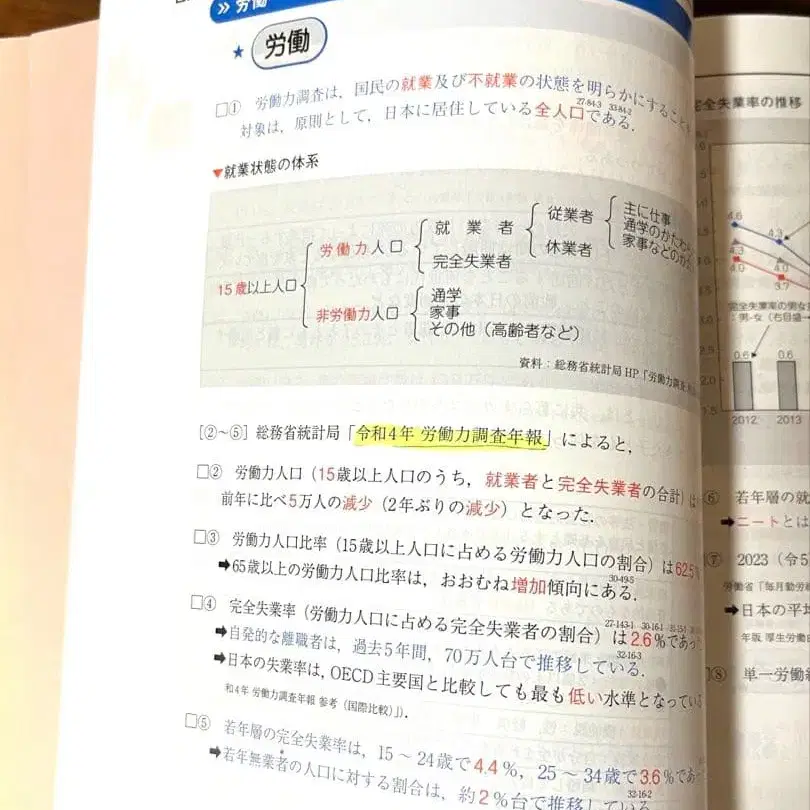 » 労働
★ 労働
□① 労働力調査は，国民の就業及び不就業の状態を明らかにすること
27-84-3 33-84-2
対象は，原則として，日本に居住している全人口である．
▼就業状態の体系
15歳以上人口
労働力人口
就業者
従業者
主に仕事
通学のかたわ
家事などのか
休業者
完全失業者
非労働力人口
通学
家事
その他（高齢者など）
資料：総務省統計局HP「労働力調査
[②～⑤] 総務省統計局「令和4年 労働力調査年報」によると，
□② 労働力人口（15歳以上人口のうち，就業者と完全失業者の合計）は
前年に比べ5万人の減少（2年ぶりの減少）となった．
□③ 労働力人口比率（15歳以上人口に占める労働力人口の割合）は62.5%
30-49-5
➡65歳以上の労働力人口比率は，おおむね増加傾向にある．
27-143-1 30-16-1
□④ 完全失業率（労働力人口に占める完全失業者の割合）は2.6%であっ
32-16-3
➡自発的な離職者は，過去5年間，70万人台で推移している．
➡日本の失業率は，OECD主要国と比較しても最も低い水準となってい
和4年 労働力調査年報 参考（国際比較）」）．
□⑤ 若年層の完全失業率は，15～24歳で4.4%，25～34歳で3.6%であ
32-16-2
➡若年無業者の人口に対する割合は，約2%台で推移している
完全失業率の推移
4.6
4.3
4.3
4.0
3.7
完全失業率の男女
：男-女（右目盛
0.6
0.6
2012
2013
⑥ 若年層の就
➡ニートとは
⑦ 2023（令5
労働省「毎月勤労
➡日本の平均
年版 厚生労働
⑧ 単一労働組